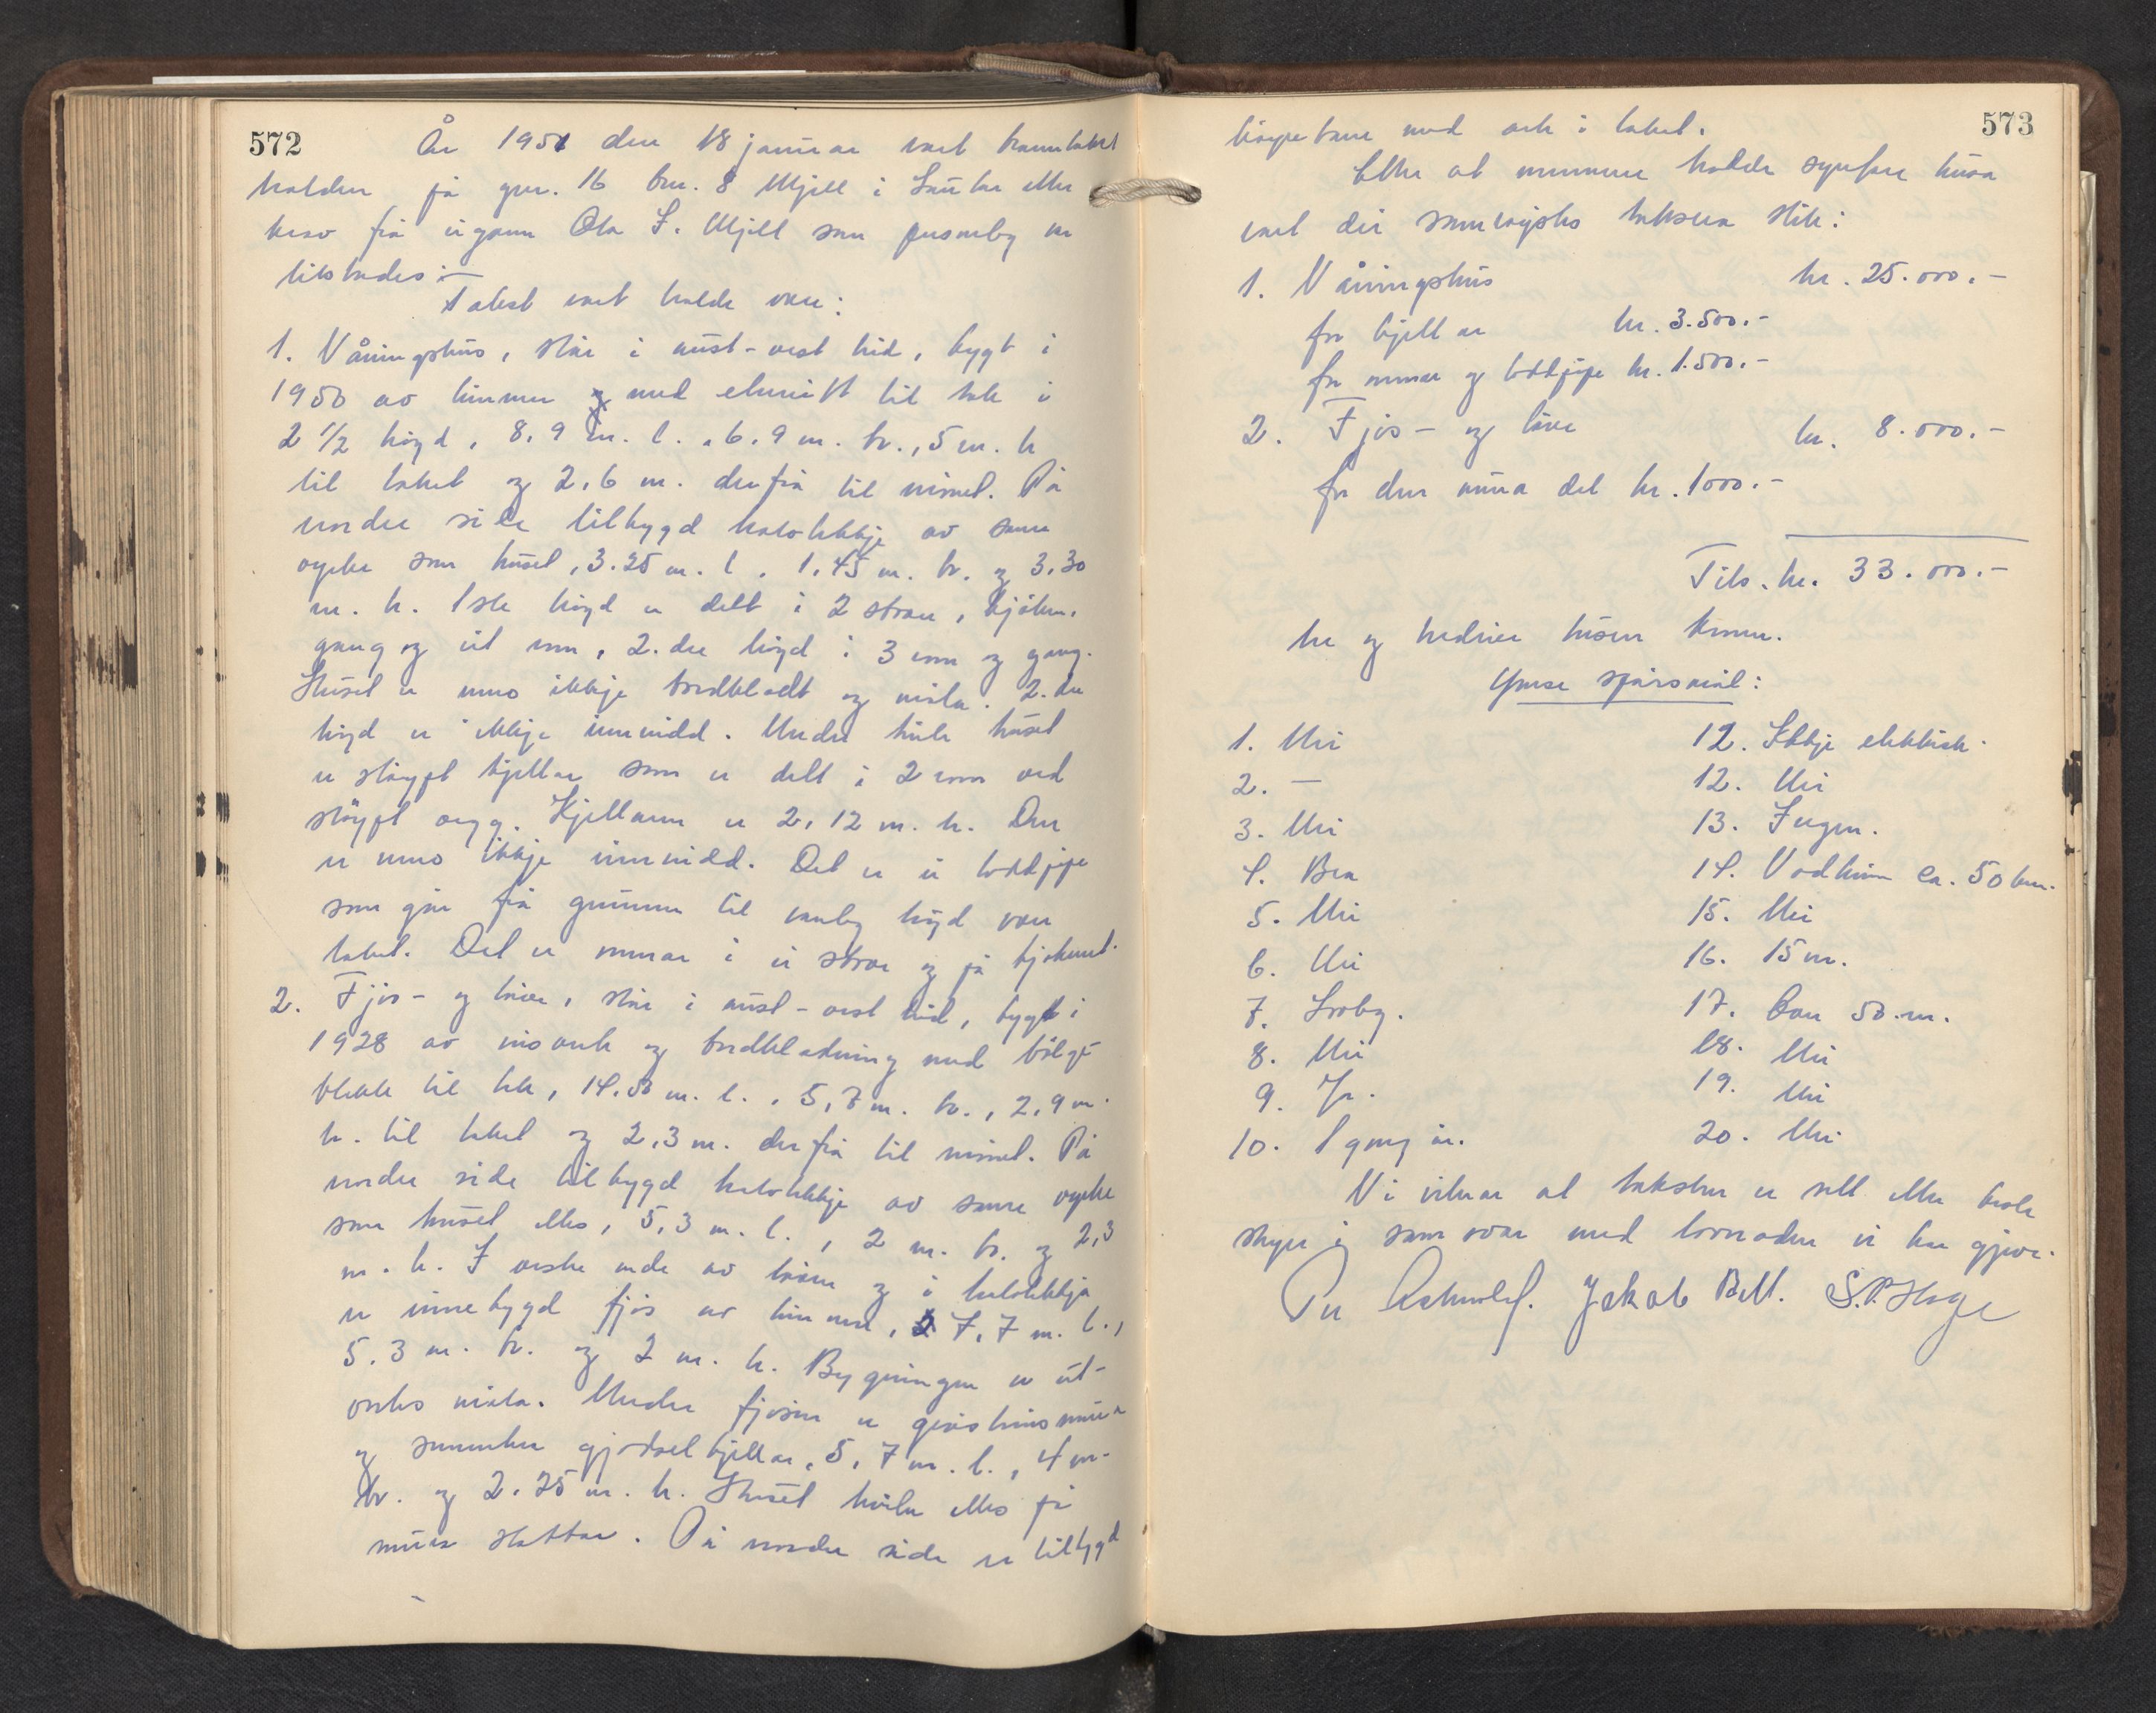 572
År 1951 den 18 januar vart branntakst
halden på gnr. 16 bnr. 8 Mjell i Lauter etter
krav frå eigaren Ola I. Mjell som personleg var
tilstades:—
Takst vart halde over:
1. Våningshus, står i aust-vest leid, bygt i
1950 av timmer med eternitt til tak i
2 1/2 høgd, 8,9 m. l. , 6,9 m. br., 5 m. h
til taket og 2,6 m. derfrå til mønet. På
nordre side tilbygd halvtekkje av same
yrke som huset, 3.25 m. l. 1,45 m. br. og 3,30
m. h. 1ste høgd er delt i 2 stover, kjøken,
gang og eit rom, 2.dre høgd i 3 rom og gang.
Huset er enno ikkje bordkledt og måla. 2.dre
høgd er ikkje innreidd. Under heile huset
er støypt kjellar som er delt i 2 rom ved
støypt vegg. Kjellaren er 2,12 m. h. Den
er enno ikkje innreidd. Det er ei loddpipe
som går frå grunnen til vanleg høgd over
taket. Det er omnar i ei stove og på kjøkenet.
2. Fjøs- og løve, står i aust-vest leid, bygt i
1928 av reisverk og bordkledning med bølgje
blekk til tak, 14,50 m. l. , 5,7 m. br., 2,9 m.
h. til taket og 2,3 m. derfrå til mønet. På
nordre side tilbygd halvtekkje av same yrke
som huset elles, 5,3 m. l. , 2 m. br. og 2,3
m. h. I vestre ende av løven og i halvtekkja
er innebygd fjøs av timmer, 7,7 m. l.,
5.3 m. br. og 2 m. h. Bygningen er ut-
vortes måla. Under fjøsen er
og sementen gjødselkjellar, 5,7 m. l., 4 m.
br. og 2.25 m. h. Huset kviler elles på
mura stettar. På nordre side er tilbygd
573
køyrebane med ark i taket.
Etter at mennene hadde synfare husa
vart dei samrøystes taksera slik:
1. Våningshus kr. 25.000.-
for kjellar kr. 3.500.-
for omnar og loddpipe kr. 1.500.-
2. Fjøs- og løve kr. 8.000.-
for den mura del kr. 1000.-
Tils. kr. 33.000.-
tre og tredve tusen kroner.
Ymse spørsmål:
1. Nei
2. —
3. Nei
4. Bra
5. Nei
6. Nei
7. Landbg.
8. Nei
9. Ja.
10. 1 gong år.
12. Ikkje elektrisk.
12. Nei
13. Ingen.
14. Vadheim ca. 50 km.
15. Nei
16. 15 m.
17. Over 50 m.
18. Nei
19. Nei
20. Nei
Vi vitnar at taksten er sett etter beste
skyn i samsvar med lovnaden vi har gjeve.
Per Jakob Bell. S.P. Hage